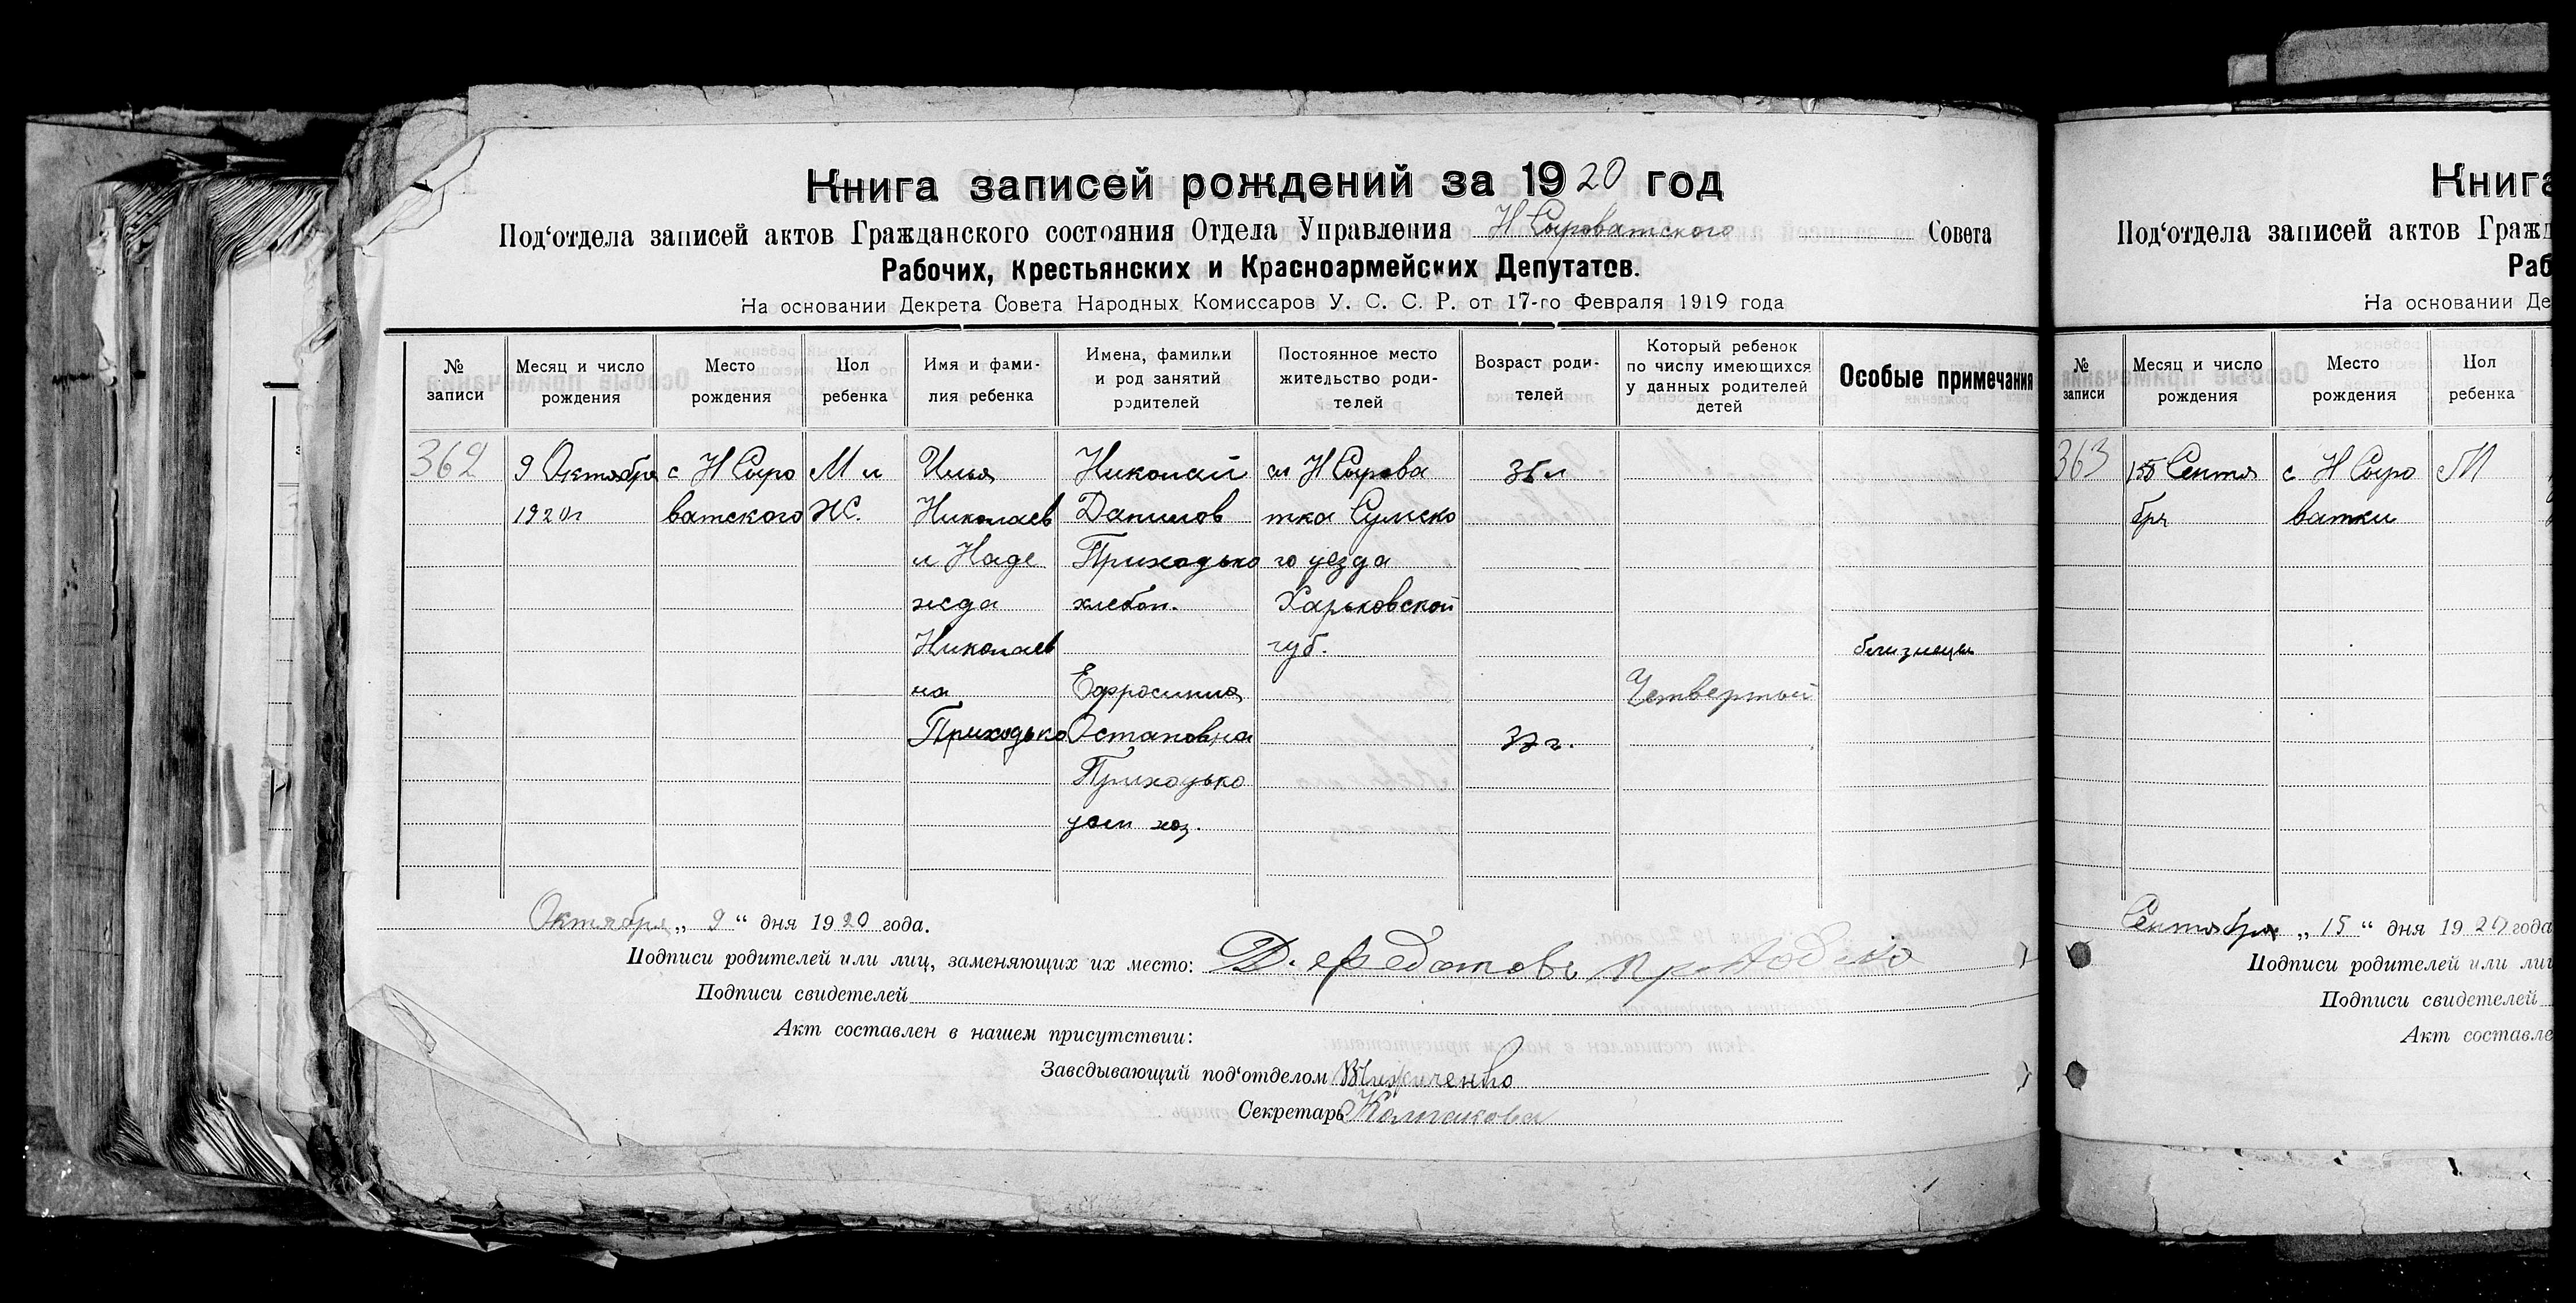 Книга записей рождений за 1920 год
Под‘отдела записей актов Гражданского состояния Отдела Управления Н Сыроватского Совета
Рабочих, Крестьянских и Красноармейских Депутатов.
На основании Декрета Совета Народных Комиссаров У. С. С. Р. от 17-го Февраля 1919 года
№ записи
Месяц и число рождения
Место рождения
Пол ребенка
Имя и фами-
лия ребенка
Имена, фамилии
и род занятий
родителей
Постоянное место
жительство роди-
телей
Возраст роди-
телей
Который ребенок
по числу имеющихся
у данных родителей
детей
Особые примечания
362
9 Октября
1920г
с Н Сыро
ватского
М и
Ж.
Илья
Николаев
и Наде
жда
Николаев
на
Приходько
Николай
Данилов
Приходько
хлебоп.
Ефросиния
Остаповна
Приходько
дом хоз.
сл Н Сырова
тка Сумско
го уезда
Харьковской
губ.
37 г.
Четвертый
близнецы
Октября „ 9 “ дня 1920 года.
Подписи родителей или лиц, заменяющих их место:
Подписи свидетелей
Акт составлен в нашем присутствии:
Заведывающий под‘отделом
Секретарь
Книга
Под‘отдела записей актов Гражд
Раб
На основании Де
№ записи
Месяц и число рождения
Место рождения
Пол ребенка
363
15 Сентя
бря
с Н Сыро
ватки
М
Сентября „ 15 “ дня 1920 года
Подписи родителей или лиц
Подписи свидетелей
Акт составле